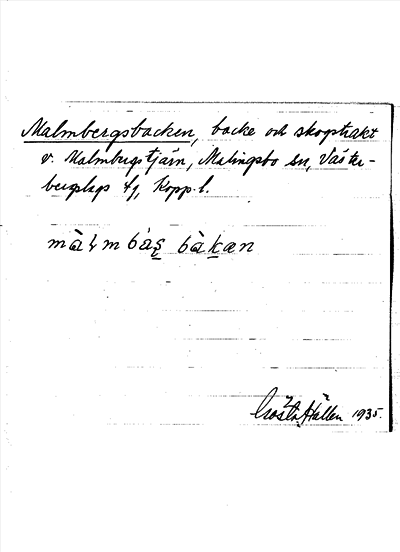 Malmbergsbacken, backe och skogstrakt
v. Malmbergstjärn, Malingsbo sn, Väster-
bergslags tg, Kopp. l.
màɫmbàs̨ bàkæn
Gösta Hallén 1935.